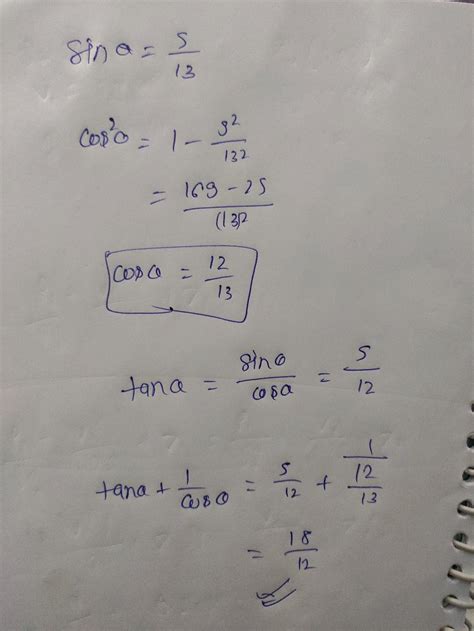 sin a = 5/13
cos²a = 1 - 5²/13²
= 169 - 25/(13)²
cos a = 12/13
tan a = sin a/cos a = 5/12
tan a + 1/cos a = 5/12 + 1/12/13
= 18/12